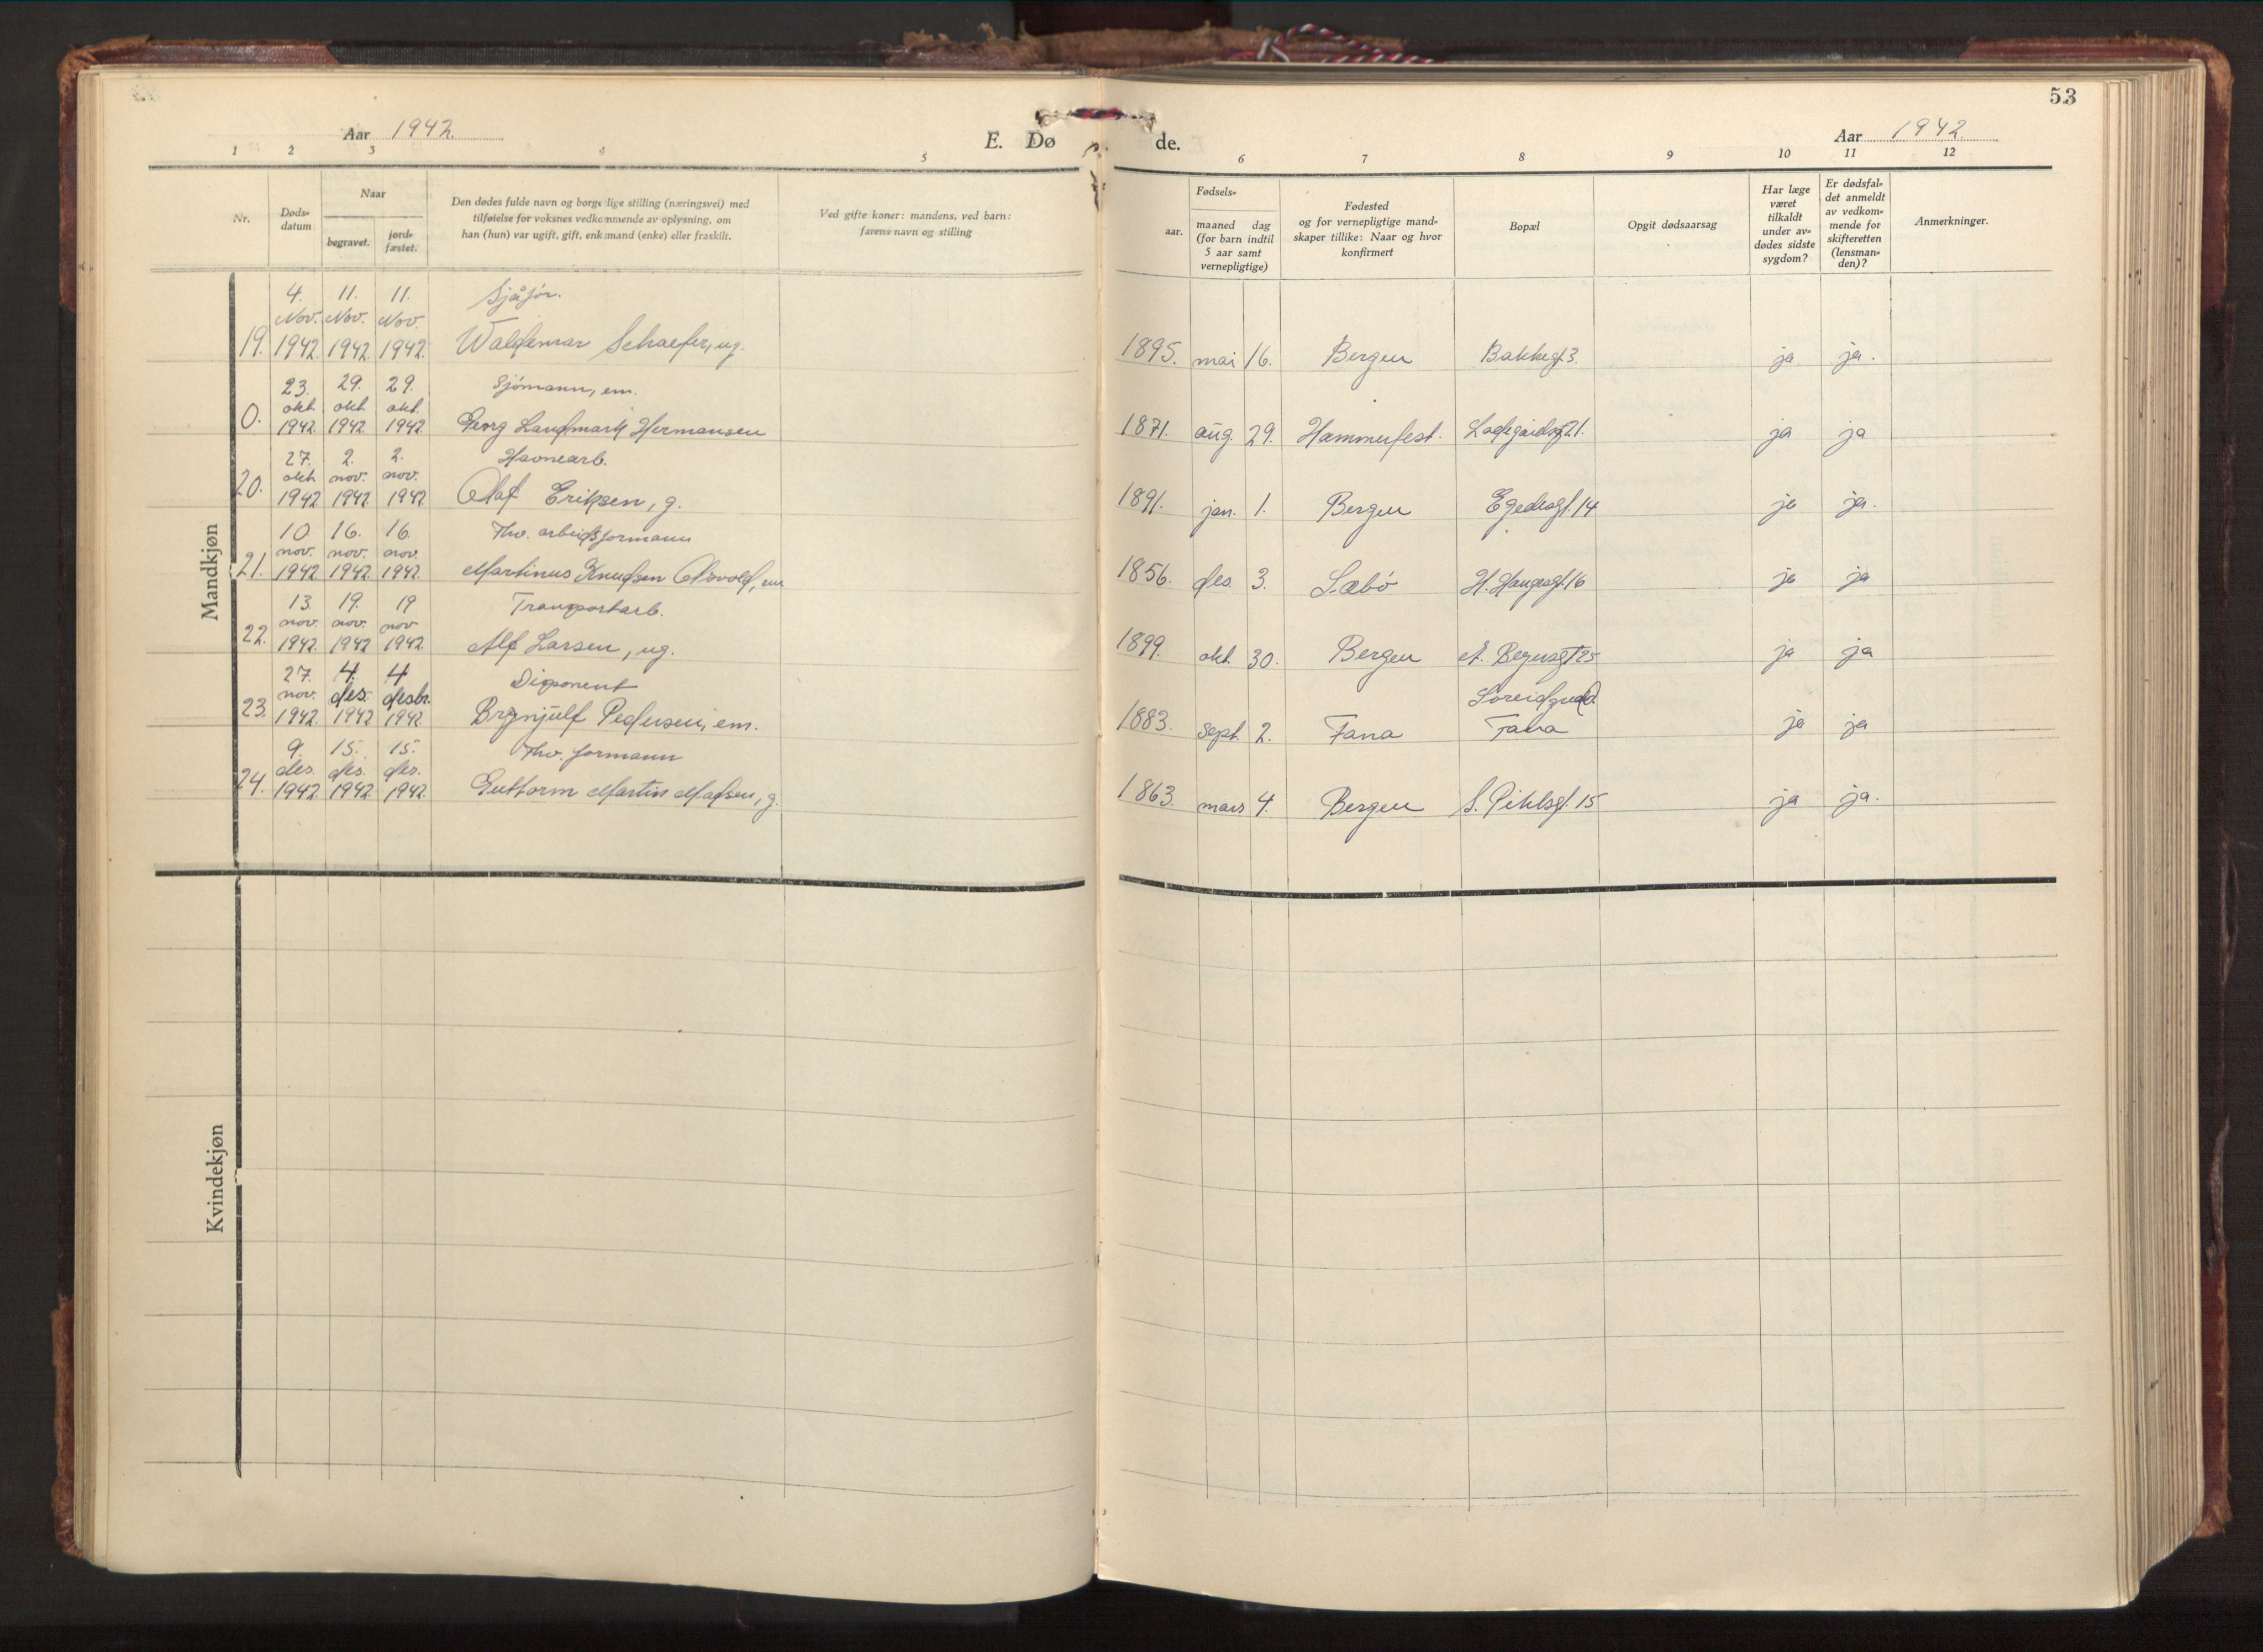 53
Aar 1942.
E. Dø
de.
Aar 1942.
1 2 3 4 5
6 7 8 9 10 11 12
Nr.
Døds-
datum
Naar
begravet.
jord-
fæstet.
Den dødes fulde navn og borgerlige stilling (næringsvei) med
tilføielse for voksnes vedkommende av oplysning, om
han (hun) var ugift, gift, enkemand (enke) eller fraskilt.
Ved gifte koner: mandens, ved barn:
farens navn og stilling
Fødsels-
aar.
maaned dag
(for barn indtil
5 aar samt
vernepligtige)
Fødested
og for vernepligtige mand-
skaper tillike: Naar og hvor
konfirmert
Bopæl
Opgit dødsaarsag
Har læge
været
tilkaldt
under av-
dødes sidste
sygdom?
Er dødsfal-
det anmeldt
av vedkom-
mende for
skifteretten
(lensman-
den)?
Anmerkninger.
Mandkjøn
4. 11. 11. Sjåfør.
Nov. Nov. Nov.
19. 1942. 1942. 1942. Waldemar Schaefer, ug. 1895. mai 16. Bergen Bakkegt. 3. ja ja.
23. 29. 29. Sjömann, em.
okt. okt. okt.
0. 1942. 1942. 1942. Georg Landmark Hermansen 1871. aug. 29. Hammerfest. Ladegaardsgt. 21. ja ja
27. 2. 2. Havnearb.
okt. nov. nov.
20. 1942. 1942. 1942. Olaf Eriksen, g. 1891. jan. 1. Bergen Egedesgt. 14 ja ja.
10. 16. 16. Fhv. arbeidsformann
nov. nov. nov.
21. 1942 1942. 1942. Martinus Knudsen 1856. des. 3. Sæbö H. Haugesgt. 16 ja ja
13. 19. 19 Transportarb.
nov. nov. nov
22. 1942. 1942 1942. Alf Larsen, ug. 1899. okt. 30. Bergen ja ja
27. 4. 4 Disponent
nov. des. desbr.
23. 1942. 1942 1942 Brynjulf Pedersen, em. 1883. Sept. 2. Fana Fana ja ja
9. 15. 15. Fhv. formann
des. des. des.
24. 1942. 1942. 1942. Guttorm Martin Madsen, g. 1863. mars 4. Bergen S. Pihlsgt. 15 ja ja.
Kvindekjøn